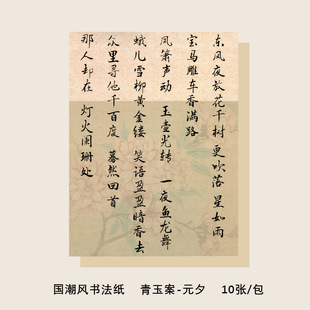 东风夜放花千树 更吹落 星如雨
宝马雕车香满路
凤箫声动 玉壶光转 一夜鱼龙舞
蛾儿雪柳黄金缕 笑语盈盈暗香去
众里寻他千百度 蓦然回首
那人却在 灯火阑珊处
国潮风书法纸 青玉案-元夕 10张/包